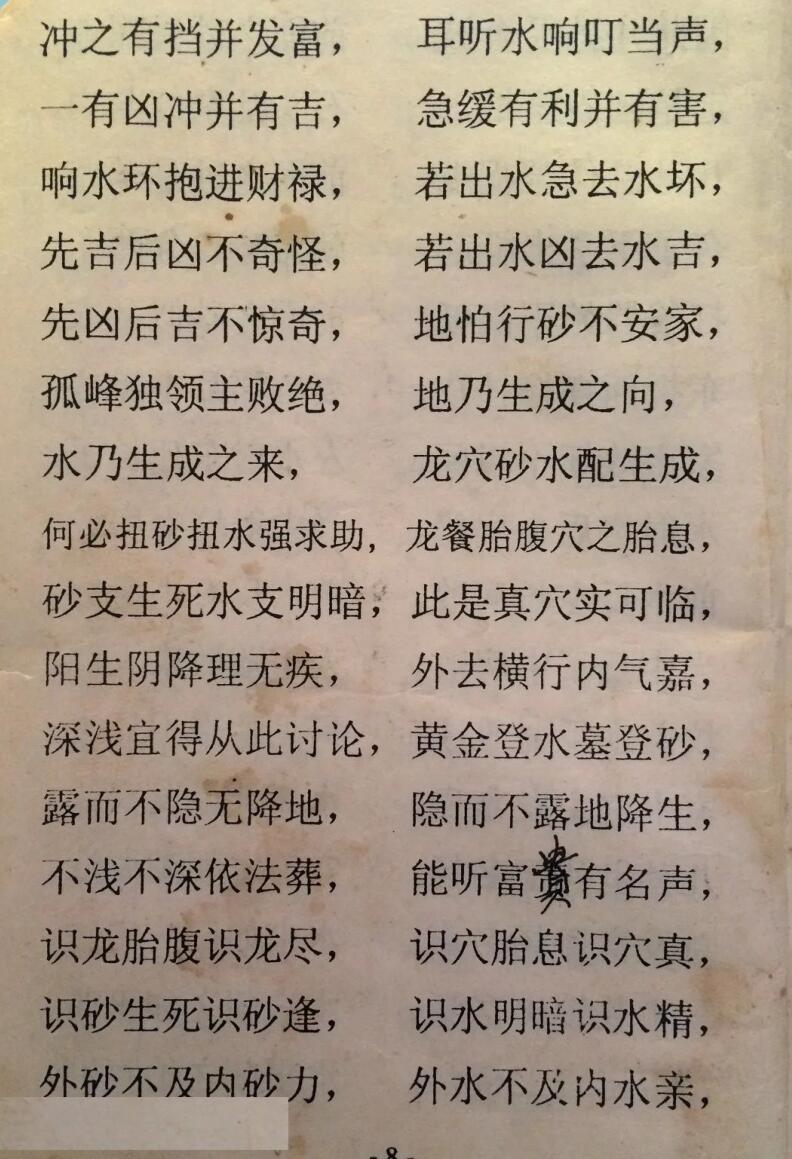 冲之有挡并发富， 耳听水响叮当声，
一有凶冲并有吉， 急缓有利并有害，
响水环抱进财禄， 若出水急去水坏，
先吉后凶不奇怪， 若出水凶去水吉，
先凶后吉不惊奇， 地怕行砂不安家，
孤峰独领主败绝， 地乃生成之向，
水乃生成之来， 龙穴砂水配生成，
何必扭砂扭水强求助， 龙餐胎腹穴之胎息，
砂支生死水支明暗， 此是真穴实可临，
阳生阴降理无疾， 外去横行内气嘉，
深浅宜得从此讨论， 黄金登水墓登砂，
露而不隐无降地， 隐而不露地降生，
不浅不深依法葬， 能听富贵有名声，
识龙胎腹识龙尽， 识穴胎息识穴真，
识砂生死识砂逢， 识水明暗识水精，
外砂不及内砂力， 外水不及内水亲，
-8-